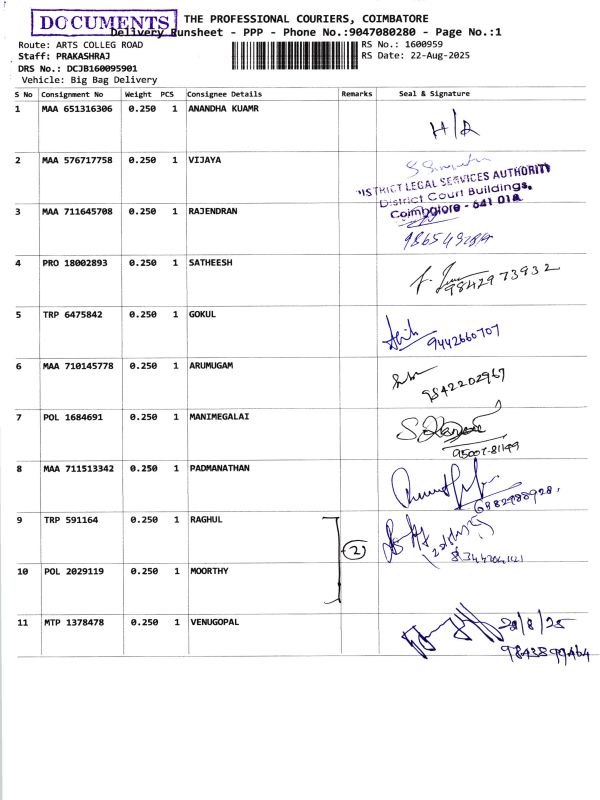 DOCUMENTS
THE PROFESSIONAL COURIERS, COIMBATORE
Delivery Runsheet - PPP - Phone No.:9047080280 - Page No.:1
Route: ARTS COLLEG ROAD
RS No.: 1600959
Staff: PRAKASHRAJ
RS Date: 22-Aug-2025
DRS No.: DCJB160095901
Vehicle: Big Bag Delivery
S No Consignment No Weight PCS Consignee Details Remarks Seal & Signature
1 MAA 651316306 0.250 1 ANANDHA KUAMR
H/R
2 MAA 576717758 0.250 1 VIJAYA
DISTRICT LEGAL SERVICES AUTHORITY
District Court Buildings,
Coimbatore - 641 018.
3 MAA 711645708 0.250 1 RAJENDRAN
4 PRO 18002893 0.250 1 SATHEESH
9842973932
5 TRP 6475842 0.250 1 GOKUL
9442660707
6 MAA 710145778 0.250 1 ARUMUGAM
9842202967
7 POL 1684691 0.250 1 MANIMEGALAI
95007-81199
8 MAA 711513342 0.250 1 PADMANATHAN
9 TRP 591164 0.250 1 RAGHUL
2
10 POL 2029119 0.250 1 MOORTHY
11 MTP 1378478 0.250 1 VENUGOPAL
22/8/25
9843899464